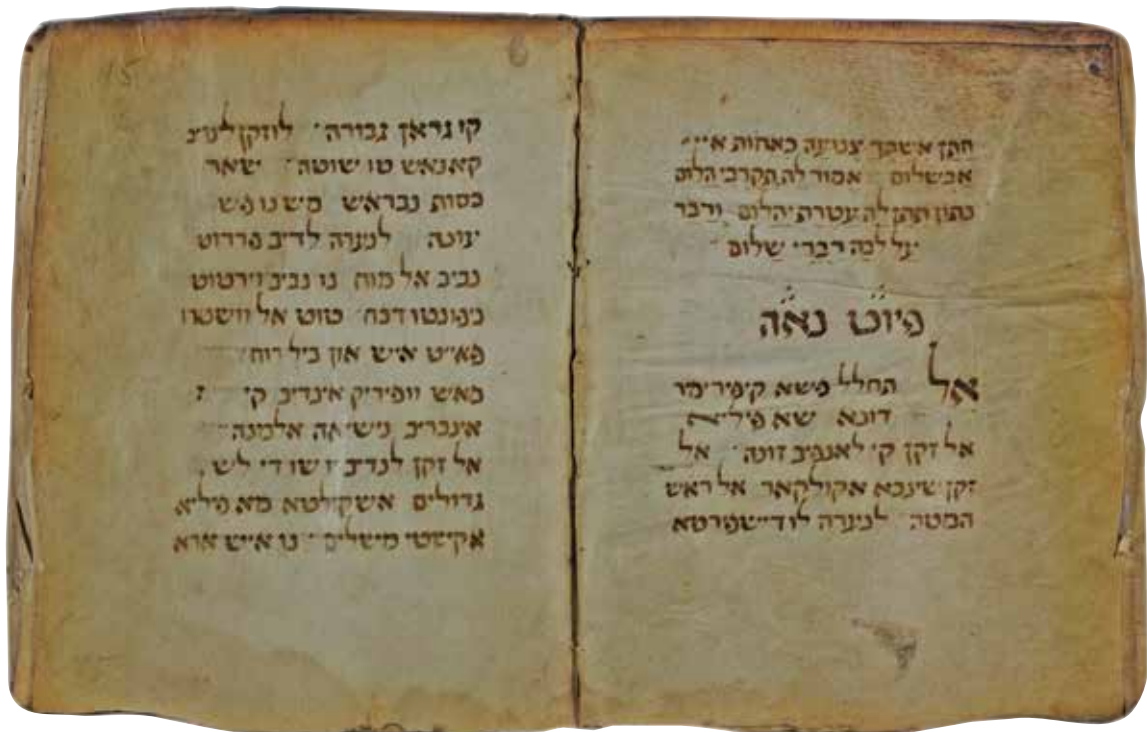 חתן אשתך צנועה כאחות א
אבשלום אמור לה תקרבי הלום
נתון תתן לה עטרת יהלום ודבר
על לבה דברי שלום
פיוט נאה
אל תהלל פשא קיפרימיר
דונא שא פיליא
אל זקן קי לאנפיב זונה אל
זקן שינבא אקולקאר אל ראש
המטה לנערה לו דישפירטא
קי גראן גבורה לוזקן לנויב
קאנאש טו שוטה ישאר
כסות נבראש מיש נופש
יגוטה לנערה לדיב פרדוט
נביב אל מות נו נביב וירטוט
ניפונטו דכח טוט אל וושטרו
פאייט איש און ביל רוח
פאש וופיריק אינדיב קי
אינבריב נישיאה אלמנה
אל זקן לנדיב שודי לש
גדולים אשקולטא מא פיליא
אקישטי מישלים נו אייש ארא
15